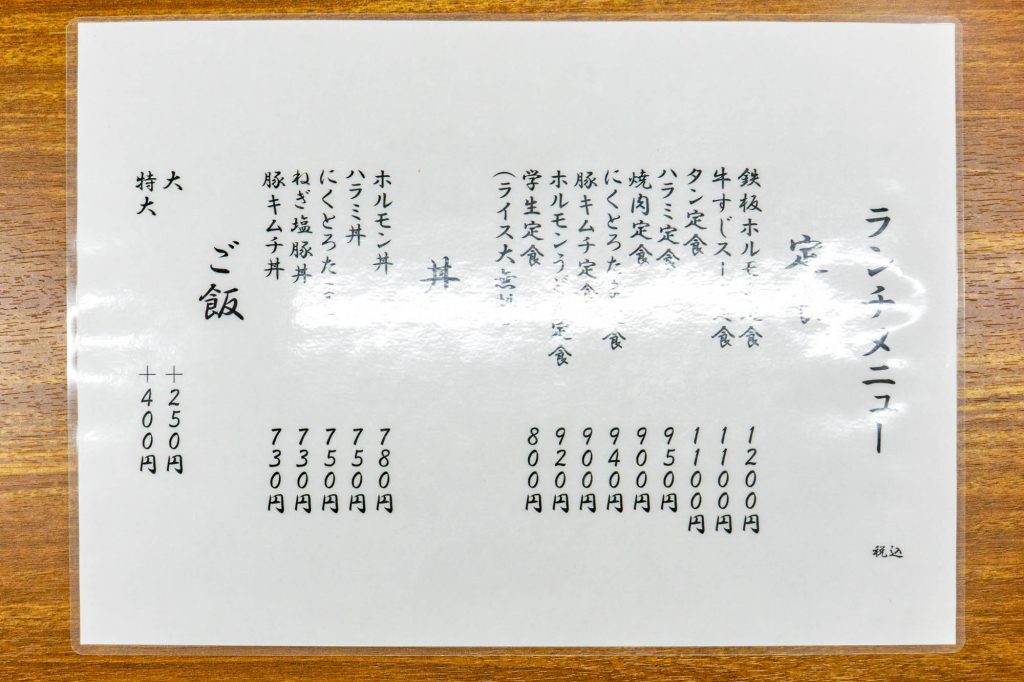 ランチメニュー
税込
定食
鉄板ホルモン定食 1200円
牛すじスープ定食 1100円
タン定食 1100円
ハラミ定食 950円
焼肉定食 900円
にくとろたま定食 940円
豚キムチ定食 900円
ホルモンうどん定食 920円
学生定食 800円
(ライス大無料
丼
ホルモン丼 780円
ハラミ丼 750円
にくとろたま 750円
ねぎ塩豚丼 730円
豚キムチ丼 730円
ご飯
大 +250円
特大 +400円